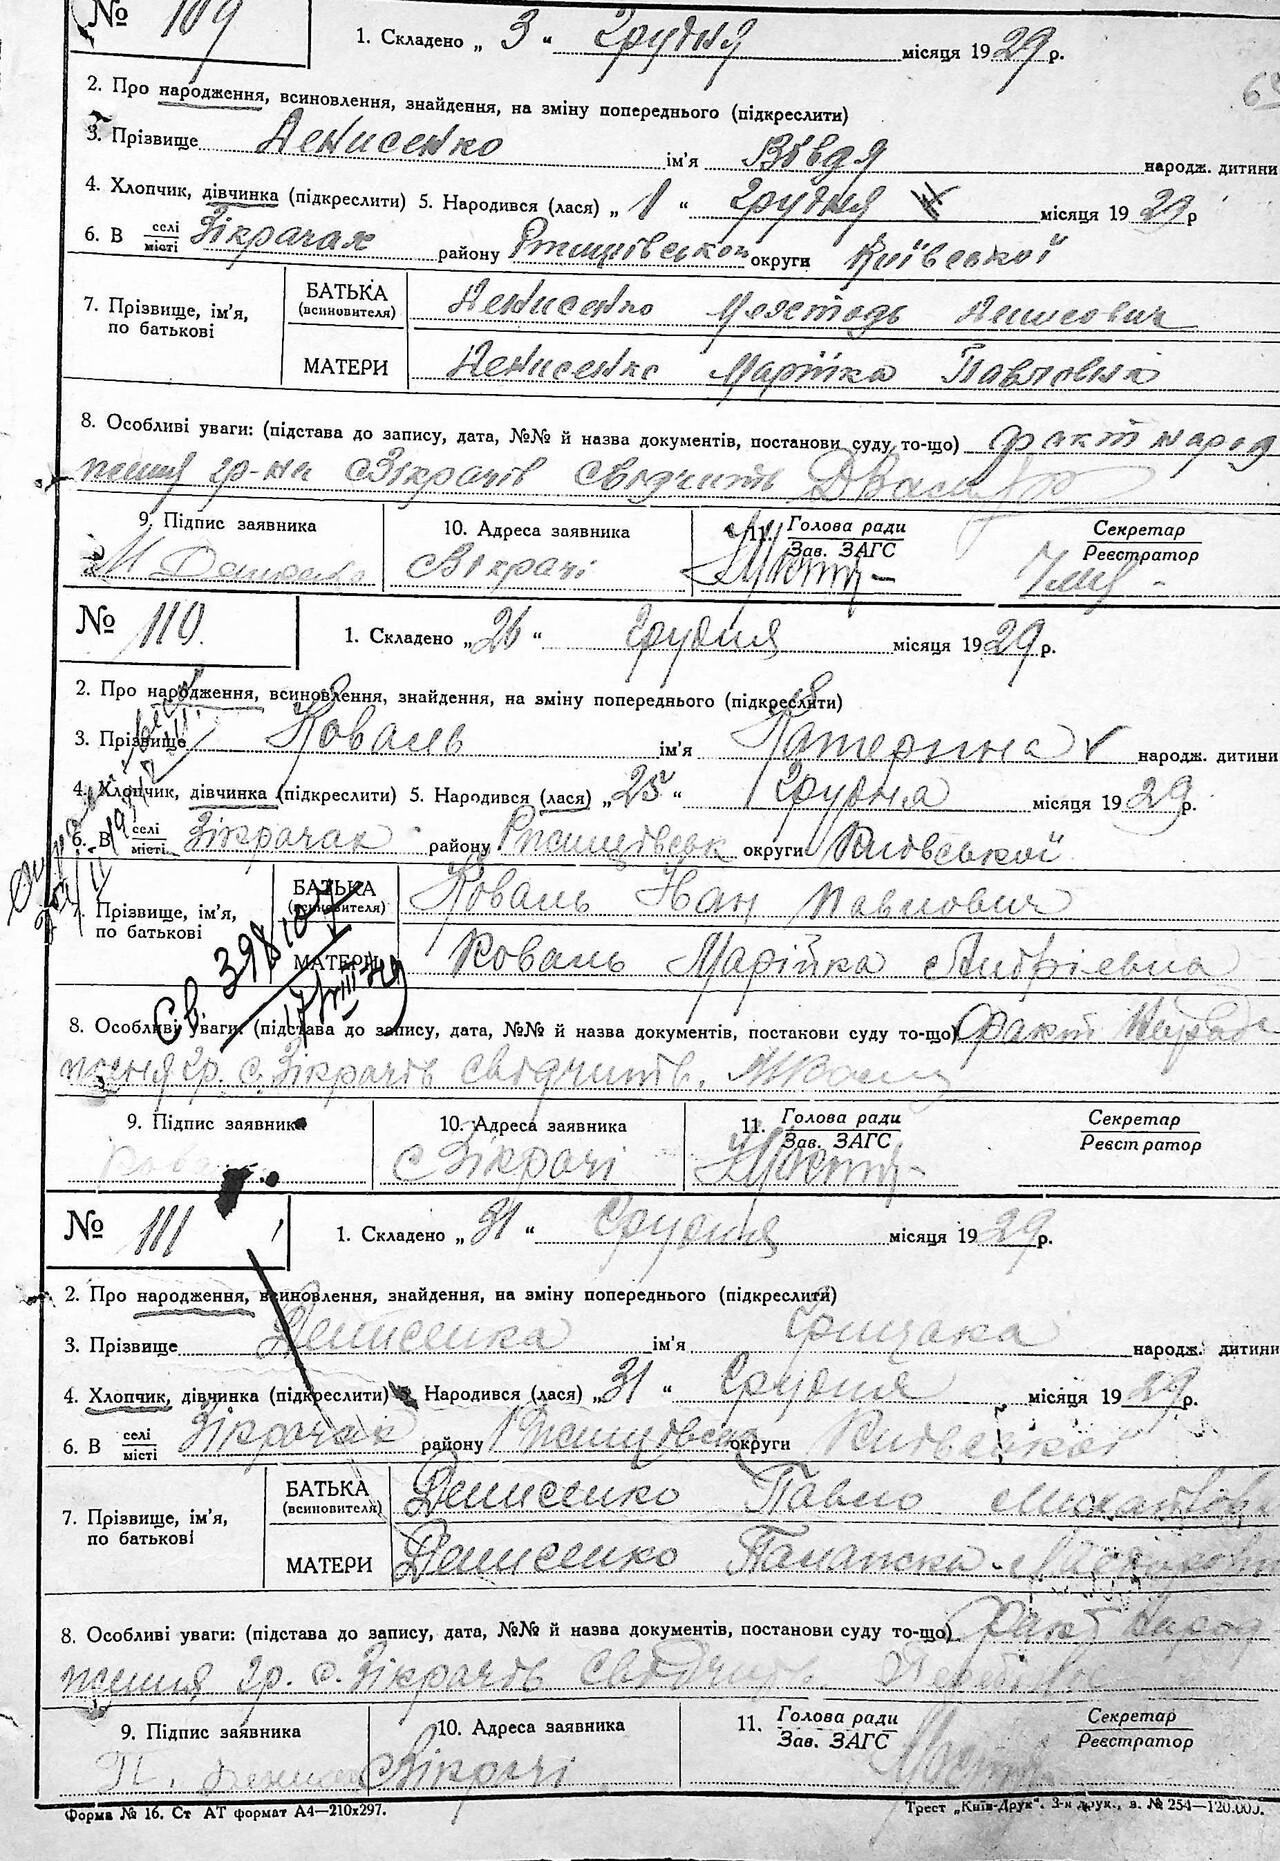 № 109
1. Складено „ 3 “ Грудня місяця 1929 р.
2. Про народження, всиновлення, знайдення, на зміну попереднього (підкреслити)
3. Прізвище Денисенко ім'я Вівдя народж. дитини
4. Хлопчик, дівчинка (підкреслити) 5. Народився (лася) „ 1 “ Грудня місяця 1929 р
6. В селі/місті Зікрачах району Ржищівськои округи Київської
7. Прізвище, ім'я, по батькові
БАТЬКА (всиновителя) Денисенко
МАТЕРИ Денисенко Марійка Павловна
8. Особливі уваги: (підстава до запису, дата, №№ й назва документів, постанови суду то-що) факт народ
ження гр-ни с Зікрачів свідчить
9. Підпис заявника 10. Адреса заявника 11. Голова ради / Зав. ЗАГС Секретар / Реєстратор
с Зікрачі
№ 110.
1. Складено „ 26 “ Грудня місяця 1929 р.
2. Про народження, всиновлення, знайдення, на зміну попереднього (підкреслити)
3. Прізвище Коваль ім'я Катерина народж. дитини
4. Хлопчик, дівчинка (підкреслити) 5. Народився (лася) „ 25 “ Грудня місяця 1929 р.
6. В селі/місті Зікрачах району Ржищівськ округи Київської
7. Прізвище, ім'я, по батькові
БАТЬКА (всиновителя) Коваль Іван Павлович
МАТЕРИ Коваль Марійка Андріевна
Св. 398107
8. Особливі уваги: (підстава до запису, дата, №№ й назва документів, постакови суду то-що) факт народ
ження гр. с. Зікрачів свідчить.
9. Підпис заявника 10. Адреса заявника 11. Голова ради / Зав. ЗАГС Секретар / Реєстратор
с Зікрачі
№ 111
1. Складено „ 31 “ Грудня місяця 1929 р.
2. Про народження, всиновлення, знайдення, на зміну попереднього (підкреслити)
3. Прізвище Денисенка ім'я Грицька народж. дитини
4. Хлопчик, дівчинка (підкреслити) 5. Народився (лася) „ 31 “ Грудня місяця 1929 р.
6. В селі/місті Зікрачах району Ржищівськ округи Київської
7. Прізвище, ім'я, по батькові
БАТЬКА (всиновителя) Денисенко Павло
МАТЕРИ Денисенко
8. Особливі уваги: (підстава до запису, дата, №№ й назва документів, постанови суду то-що) факт народ
ження гр. с. Зікрачів свідчить
9. Підпис заявника 10. Адреса заявника 11. Голова ради / Зав. ЗАГС Секретар / Реєстратор
с Зікрачі
Форма № 16. Ст АТ формат А4—210х297.
Трест „Київ-Друк“. 3-я друк., з. № 254—120.000.